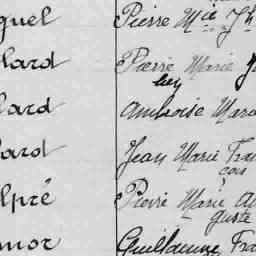 guel Pierre Mie Jh
lard Pierre Marie J
lard Ambroise Marie
ard Jean Marie Fran
çois
lpré Pierre Marie Au
guste
mor Guillaume Fra